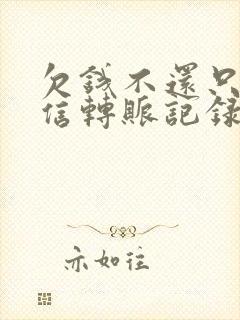 欠錢不還只
信轉賬記録
亦如往